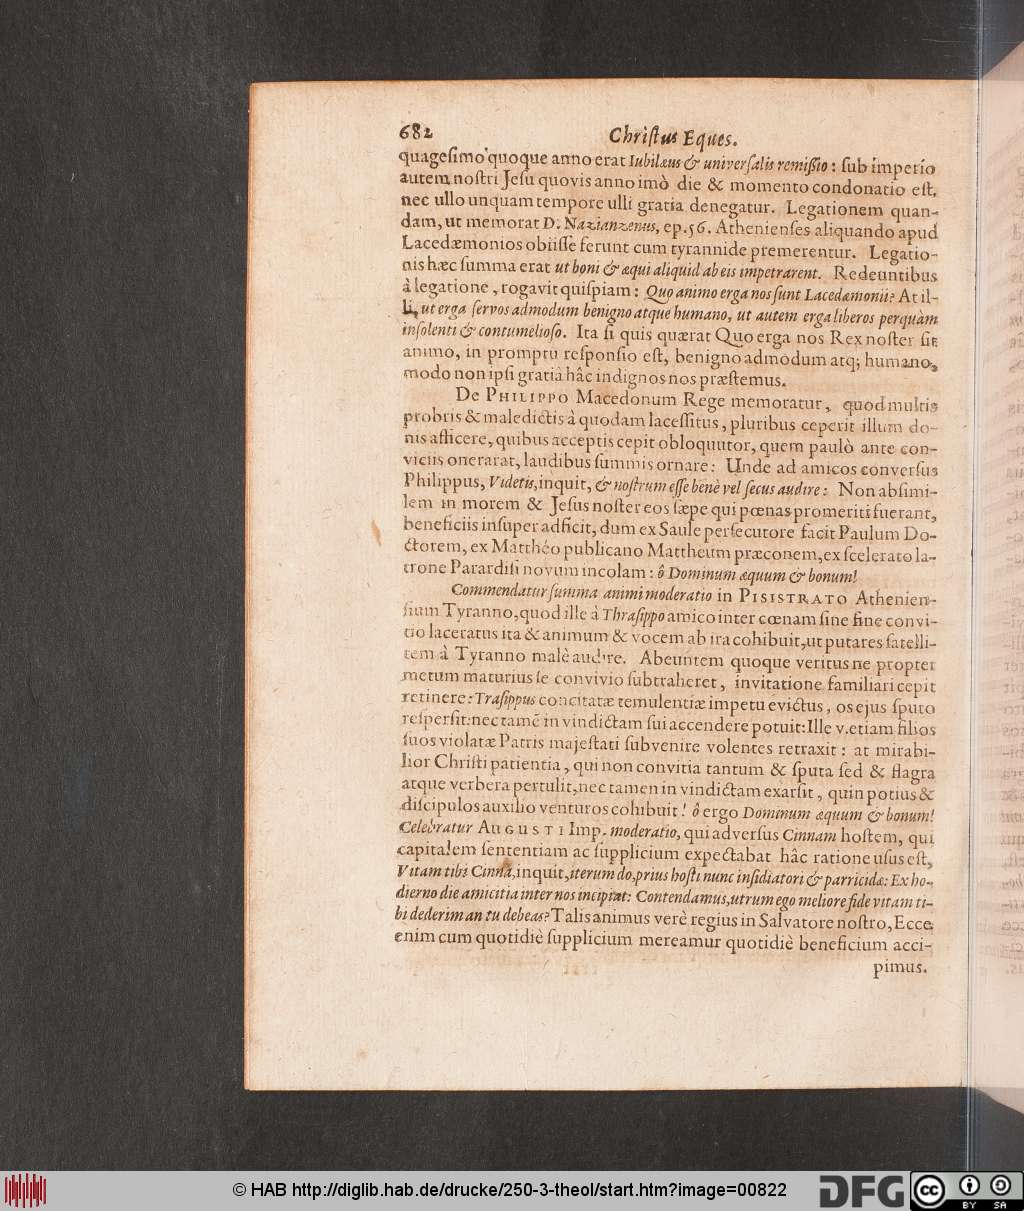 682
Christus Eques.
quagesimo quoque anno erat Iubilæus & universalis remißio: sub imperio
autem nostri Jesu quovis anno imò die & momento condonatio est,
nec ullo unquam tempore ulli gratia denegatur. Legationem quan-
dam, ut memorat D. Nazianzenus, ep. 56. Athenienses aliquando apud
Lacedæmonios obiisse ferunt cum tyrannide premerentur. Legatio-
nis hæc summa erat ut boni & æqui aliquid ab eis impetrarent. Redeuntibus
à legatione, rogavit quispiam: Quo animo erga nos sunt Lacedæmonii? At il-
li, ut erga servos admodum benigno atque humano, ut autem erga liberos perquàm
insolenti & contumelioso. Ita si quis quærat Quo erga nos Rex noster sit
animo, in promptu responsio est, benigno admodum atq; humano,
modo non ipsi gratiâ hâc indignos nos præstemus.
De PHILIPPO Macedonum Rege memoratur, quod multis
probris & maledictis à quodam lacessitus, pluribus ceperit illum do-
nis afficere, quibus acceptis cepit obloquutor, quem paulò ante con-
viciis onerarat, laudibus summis ornare: Unde ad amicos conversus
Philippus, Videtis, inquit, & nostrum esse benè vel secus audire: Non absimi-
lem in morem & Jesus noster eos sæpe qui pœnas promeriti fuerant,
beneficiis insuper adficit, dum ex Saule persecutore facit Paulum Do-
ctorem, ex Matthéo publicano Mattheum præconem, ex scelerato la-
trone Parardisi novum incolam: ô Dominum æquum & bonum!
Commendatur summa animi moderatio in PISISTRATO Athenien-
sium Tyranno, quod ille à Thrasippo amico inter cœnam sine fine convi-
tio laceratus ita & animum & vocem ab ira cohibuit, ut putares satelli-
tem à Tyranno malè audire. Abeuntem quoque veritus ne propter
metum maturius se convivio subtraheret, invitatione familiari cepit
retinere: Trasippus concitatæ temulentiæ impetu evictus, os ejus sputo
respersit: nec tamẽ in vindictam sui accendere potuit: Ille v. etiam filios
suos violatæ Patris majestati subvenire volentes retraxit: at mirabi-
lior Christi patientia, qui non convitia tantum & sputa sed & flagra
atque verbera pertulit, nec tamen in vindictam exarsit, quin potius &
discipulos auxilio venturos cohibuit! ô ergo Dominum æquum & bonum!
Celebratur AUGUSTI Imp. moderatio, qui adversus Cinnam hostem, qui
capitalem sententiam ac supplicium expectabat hâc ratione usus est,
Vitam tibi Cinna, inquit, iterum do, prius hosti nunc insidiatori & parricidæ: Ex ho-
dierno die amicitia inter nos incipiat: Contendamus, utrum ego meliore fide vitam ti-
bi dederim an tu debeas? Talis animus verè regius in Salvatore nostro, Ecce
enim cum quotidiè supplicium mereamur quotidiè beneficium acci-
pimus.
© HAB http://diglib.hab.de/drucke/250-3-theol/start.htm?image=00822
DFG
cc
BY SA